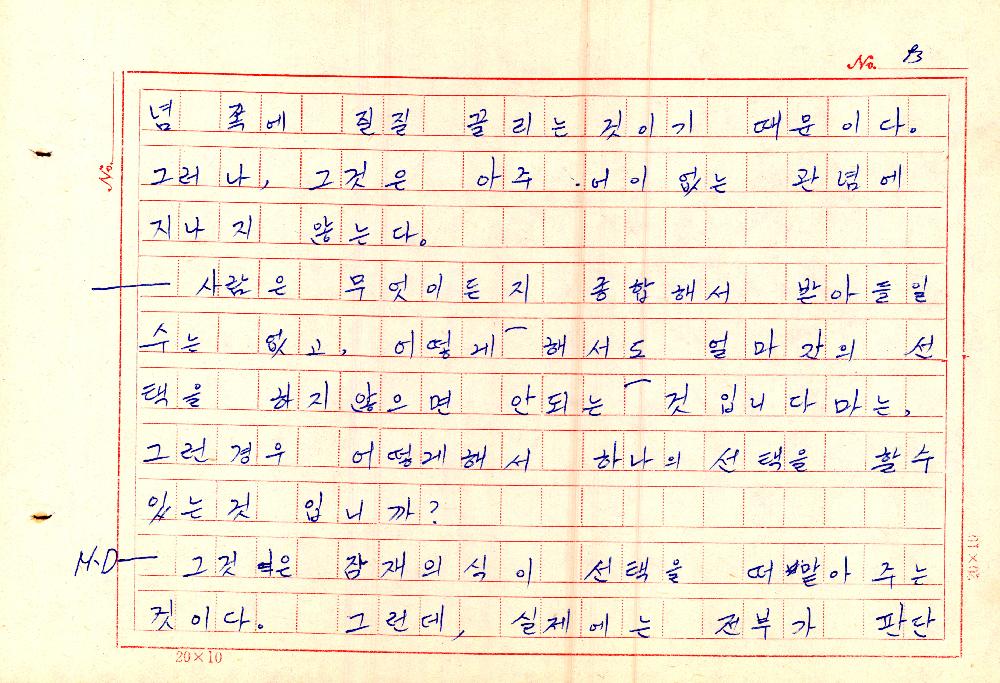 No. 93
No.
념 쪽에 질질 끌리는 것이기 때문이다.
그러나, 그것은 아주 어이 없는 관념에
지나지 않는다.
— 사람은 무엇이든지 종합해서 받아들일
수는 없고, 어떻게 해서도 얼마간의 선
택을 하지않으면 안되는 것 입니다마는,
그런경우 어떻게해서 하나의 선택을 할수
있는것 입니까?
M·D— 그것은 잠재의식이 선택을 떠맡아 주는
것이다. 그런데, 실제에는 전부가 판단
20×10
20×10